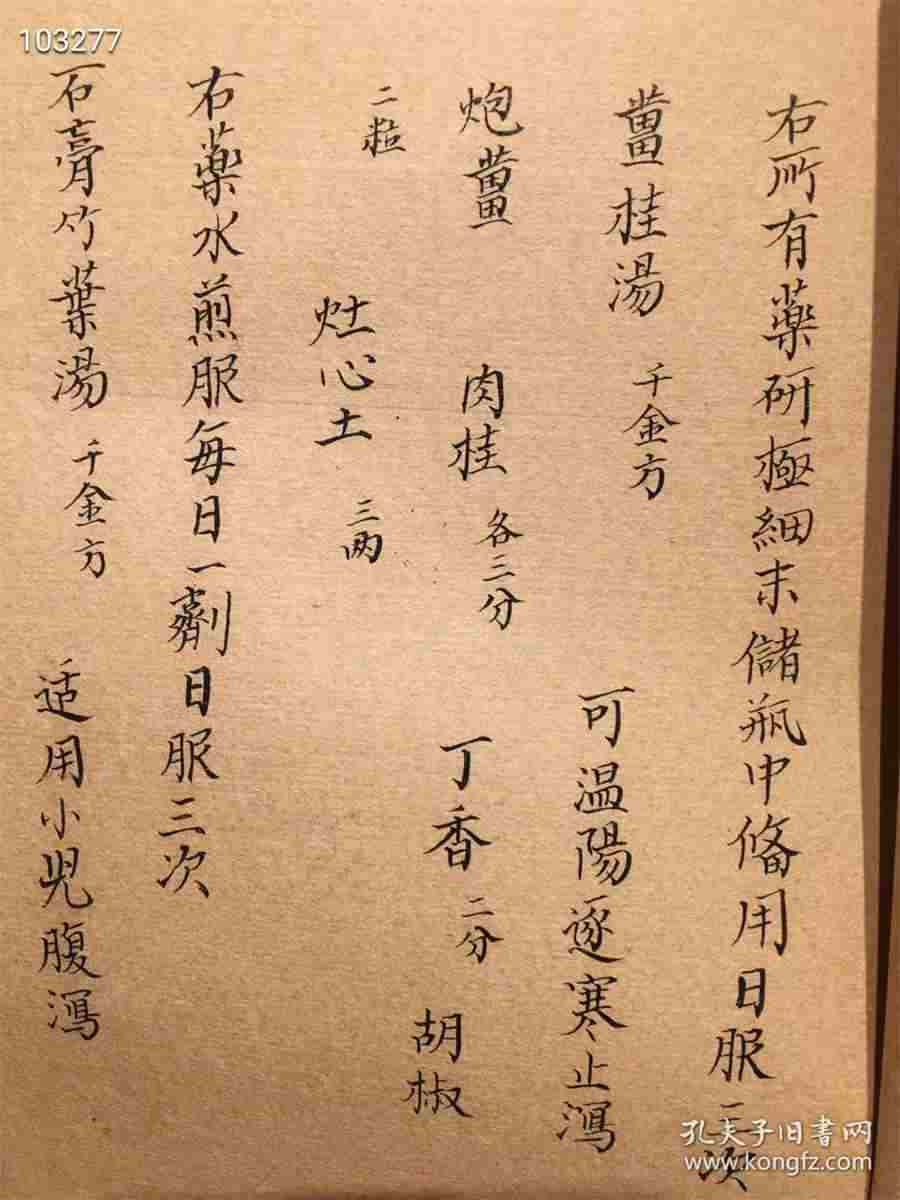 右所有藥研極細末儲瓶中俻用日服二次
薑桂湯 千金方 可温陽逐寒止瀉
炮薑 肉桂 各三分 丁香 二分 胡椒
二粒 灶心土 三两
右藥水煎服每日一劑日服三次
石膏竹葉湯 千金方 适用小児腹瀉
103277
孔夫子旧书网
www.kongfz.com